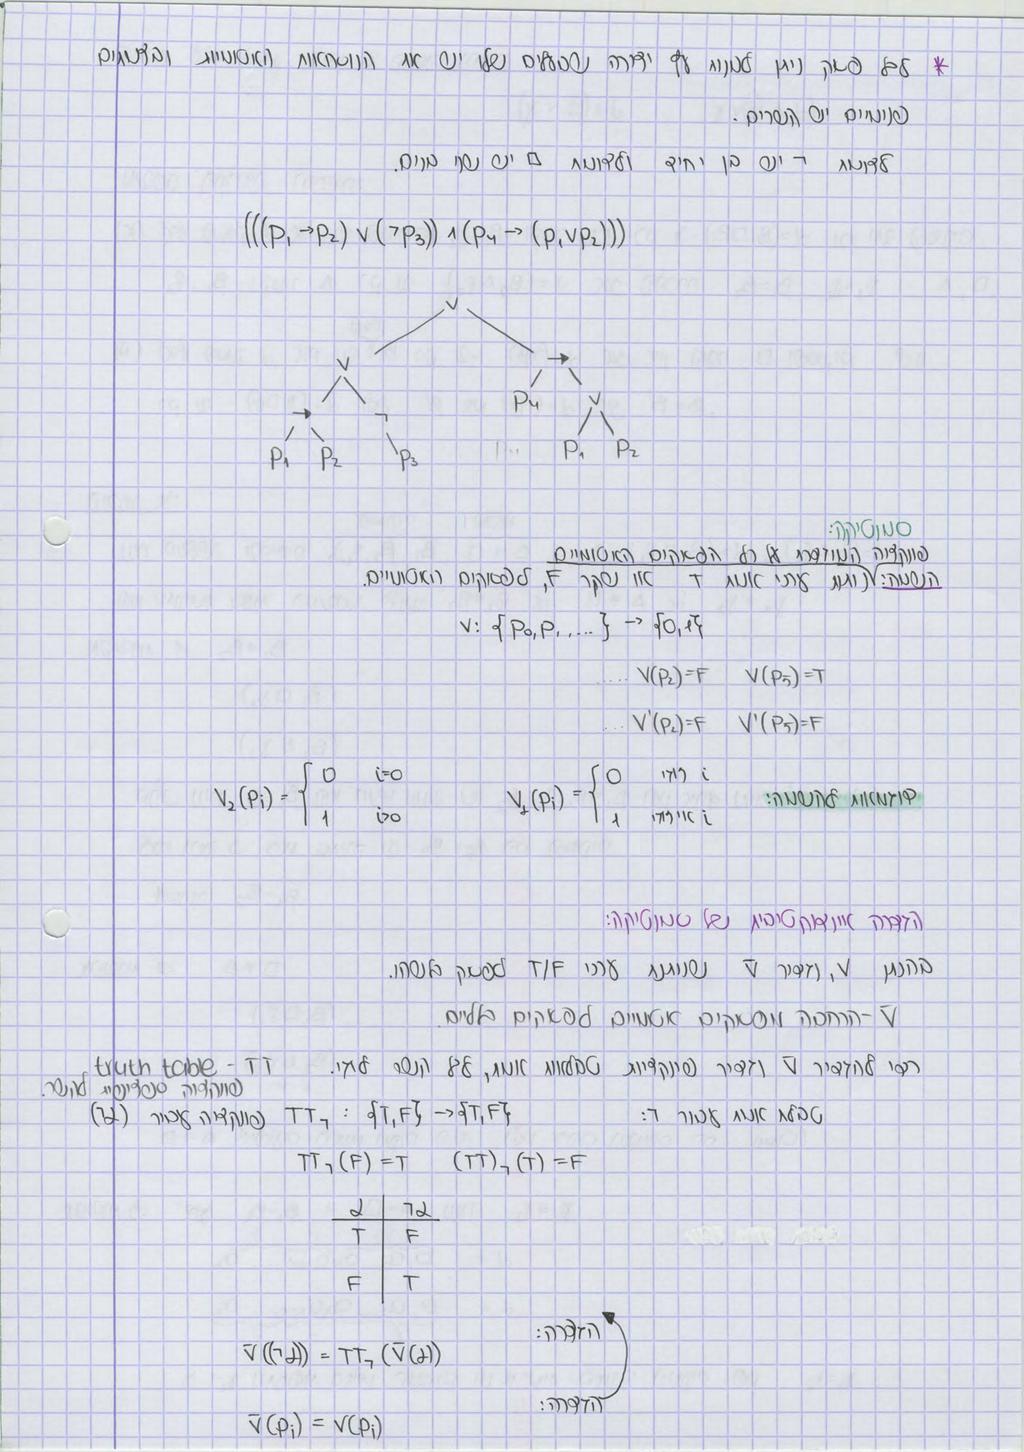 * לכל פסוק ניתן לבנות עץ יצירה שבעלים שלו יש את הנוסחאות האטומיות ובצמתים
פנימיים יש קשרים.
לצומת ¬ יש בן יחיד ולצומת □ יש שני בנים.
(((p₁→p₂)∨(¬p₃))∧(p₄→(p₁∨p₂)))
∨
∨ →
→ ¬ p₄ ∨
p₁ p₂ p₃ p₁ p₂
סמנטיקה:
פונקציה המוגדרת על כל הפסוקים האטומיים
השמה: נותנת ערכי אמת T או שקר F, לפסוקים האטומיים.
V: {p₀,p₁.....} → {0,1}
V(p₅)=T V(p₂)=F ....
V'(p₅)=F V'(p₂)=F ...
דוגמאות להשמה: V₁(pᵢ) = { 0 i זוגי V₂(pᵢ) = { 0 i=0
1 i אי זוגי 1 i>0
הגדרה אינדוקטיבית של סמנטיקה:
בהנתן V, נגדיר V̄ שנותנת ערכי T/F לפסוק כלשהו.
V̄ - הרחבה מפסוקים אטומיים לפסוקים כללים.
כדי להגדיר V̄ נגדיר פונקציות טבלאות אמת, לכל קשר לוגי. truth table - TT
פונקציה ספציפית לקשר.
טבלת אמת עבור ¬: TT¬ : {T,F} → {T,F} פונקציה עבור (¬α)
TT¬(F) = T (TT)¬(T) = F
α ¬α
T F
F T
הגדרה:
V̄((¬α)) = TT¬(V̄(α))
הגדרה:
V̄(pᵢ) = V(pᵢ)